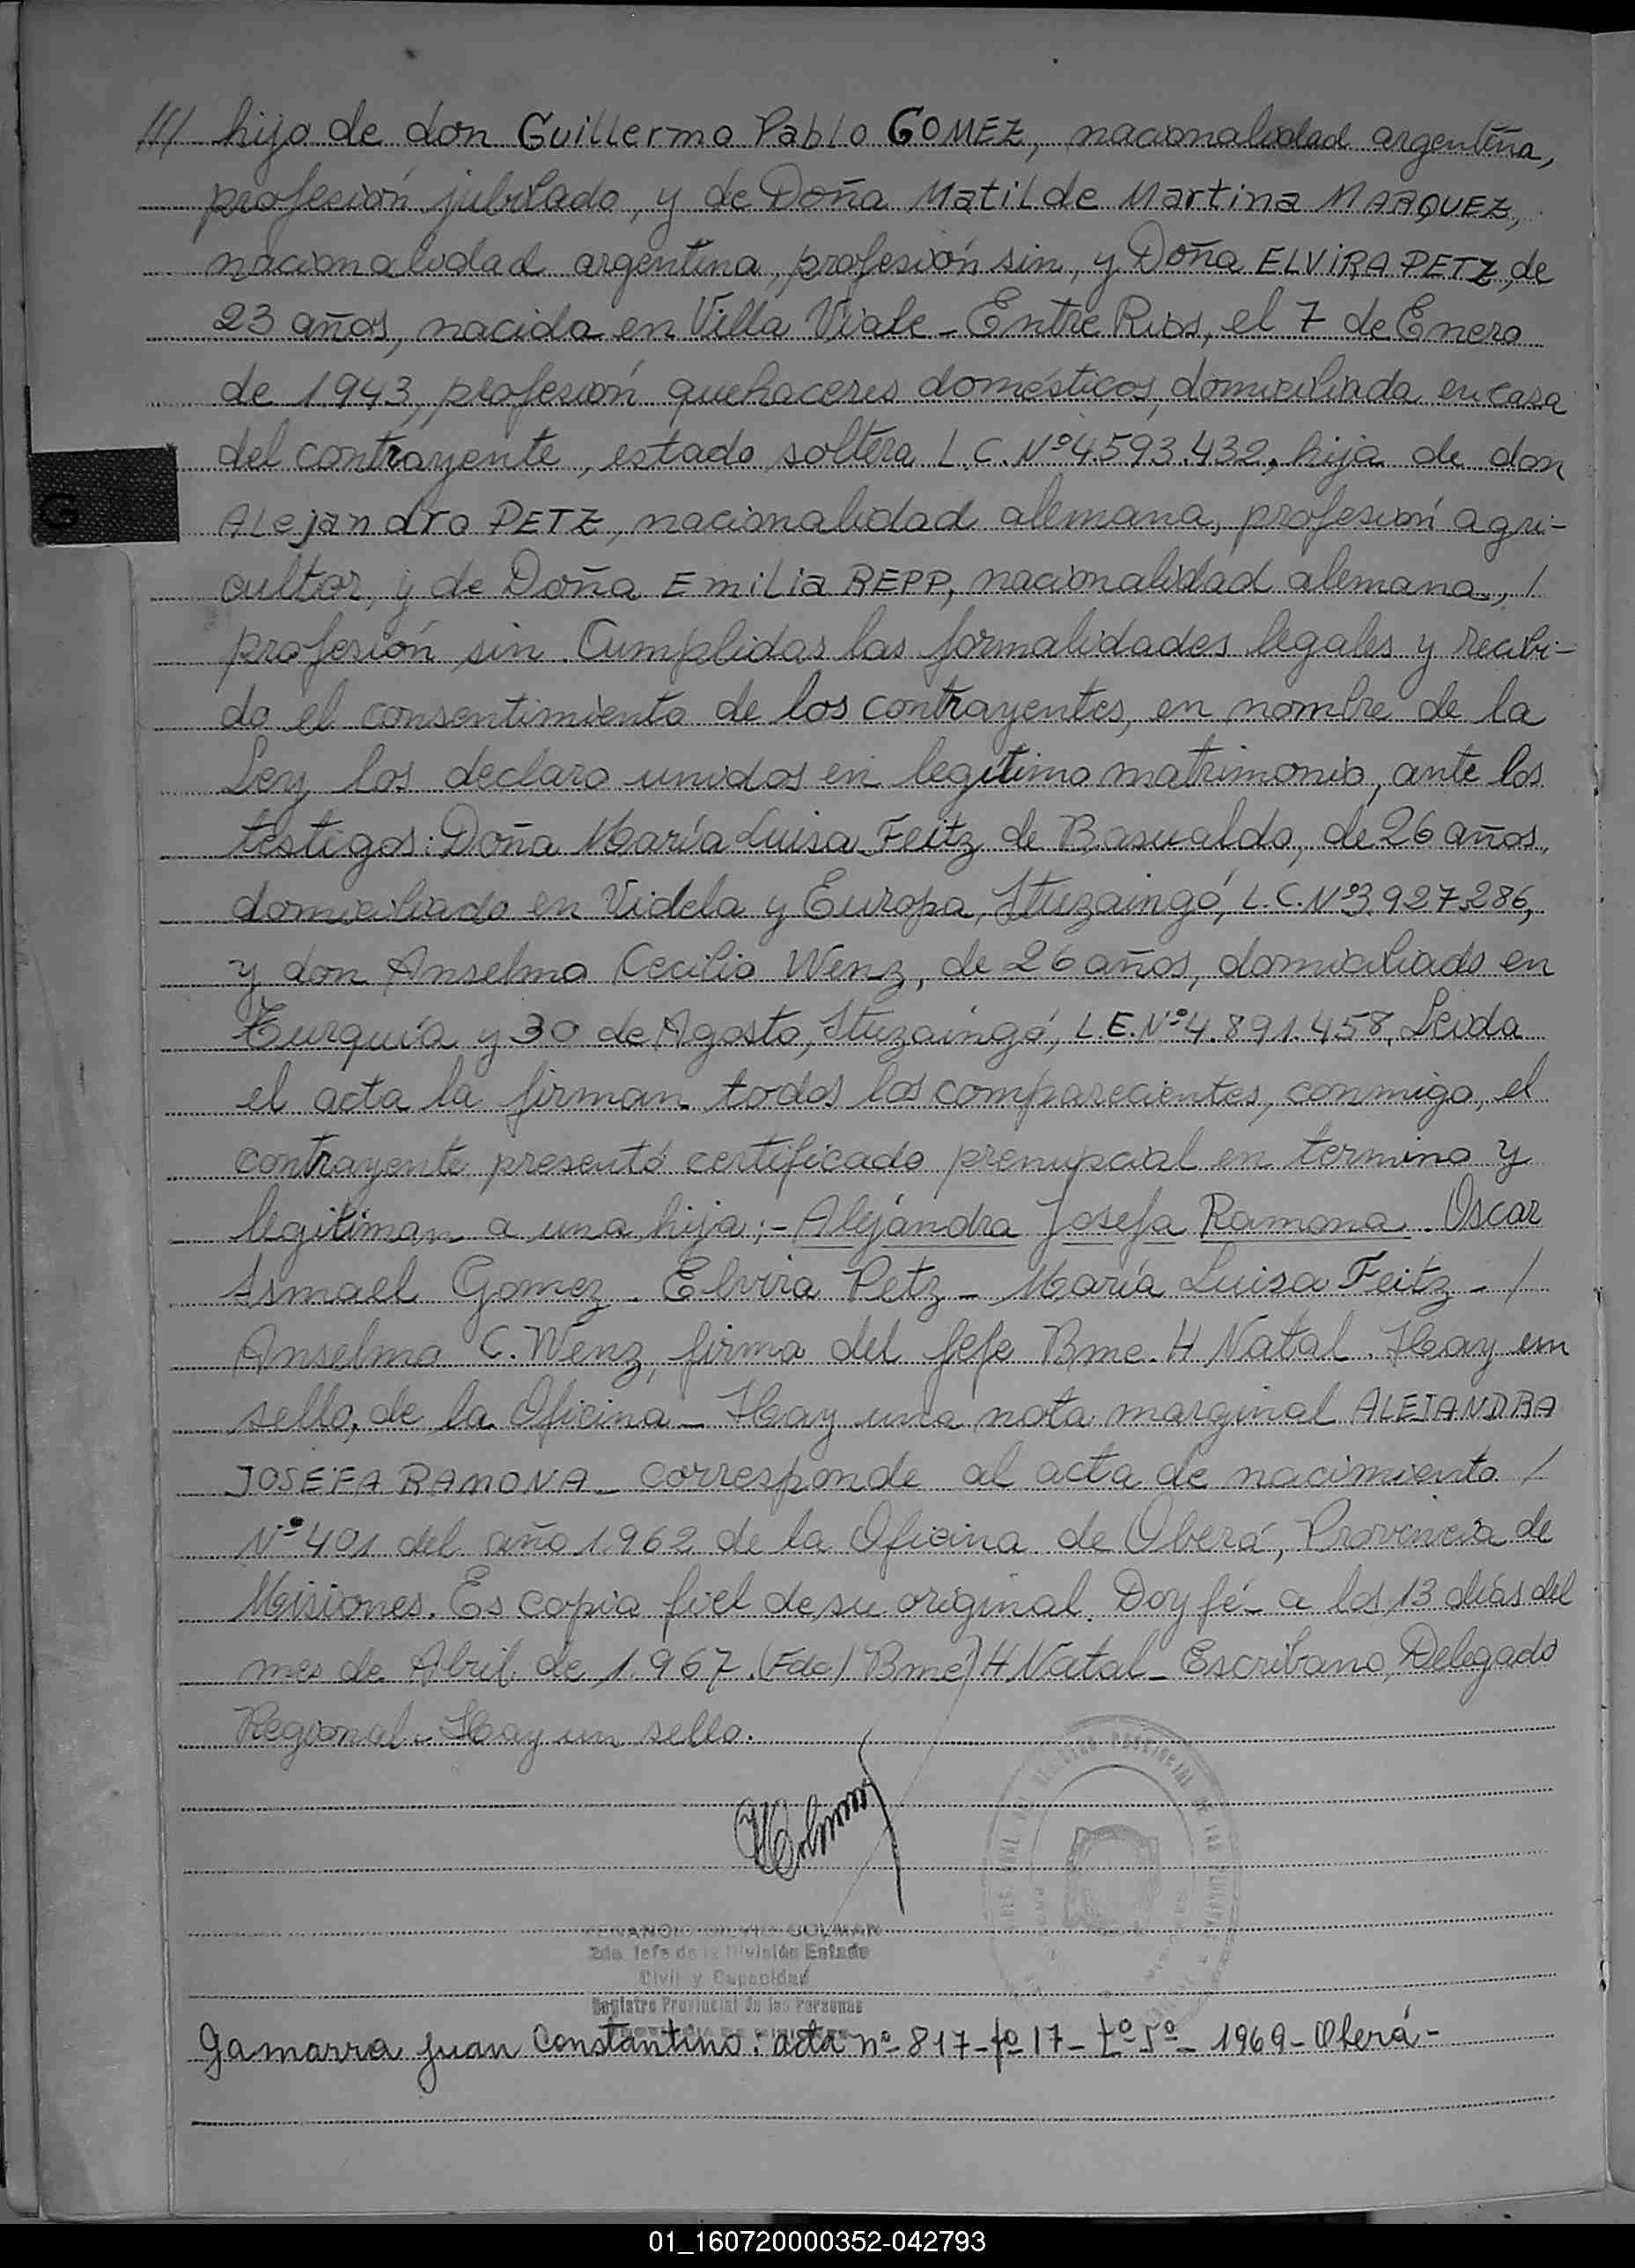 /// hijo de don Guillermo Pablo GOMEZ, nacionalidad argentina,
profesión jubilado, y de Doña Matilde Martina MARQUEZ,
nacionalidad argentina, profesión sin, y Doña ELVIRA PETZ, de
23 años, nacida en Villa Viale - Entre Rios, el 7 de Enero
de 1943, profesión quehaceres domésticos, domiciliada en casa
del contrayente, estado soltera L.C. Nº 4.593.432, hija de don
Alejandro PETZ, nacionalidad alemana, profesión agri-
cultor, y de Doña Emilia REPP, nacionalidad alemana, /
profesión sin. Cumplidas las formalidades legales y recibi-
do el consentimiento de los contrayentes, en nombre de la
Ley los declaro unidos en legítimo matrimonio, ante los
testigos: Doña María Luisa Feitz de Basualdo, de 26 años,
domiciliado en Videla y Europa, Ituzaingó, L.C. Nº 3.927.286,
y don Anselmo Cecilio Wenz, de 26 años, domiciliado en
Turquía y 30 de Agosto, Ituzaingó, L.E. Nº 4.891.458, Leida
el acta la firman todos los comparecientes, conmigo, el
contrayente presentó certificado prenupcial en termino y
legitiman a una hija: - Alejandra Josefa Ramona. Oscar
Ismael Gomez. Elvira Petz - María Luisa Feitz - /
Anselmo C. Wenz, firma del Jefe Bme. H Natal. Hay un
sello, de la Oficina - Hay una nota marginal ALEJANDRA
JOSEFA RAMONA - corresponde al acta de nacimiento /
Nº 401 del año 1962 de la Oficina de Oberá, Provincia de
Misiones. Es copia fiel de su original. Doy fé - a los 13 días del
mes de Abril de 1967. (Fdo) Bme) H. Natal - Escribano, Delegado
Regional - Hay un sello.
COLMAN
2do. Jefe de la División Estado
Civil y Capacidad
Registro Provincial de las Personas
Gamarra Juan Constantino: acta nº 817 - fº 17 - tº 5º - 1969 - Oberá -
G
01_160720000352-042793